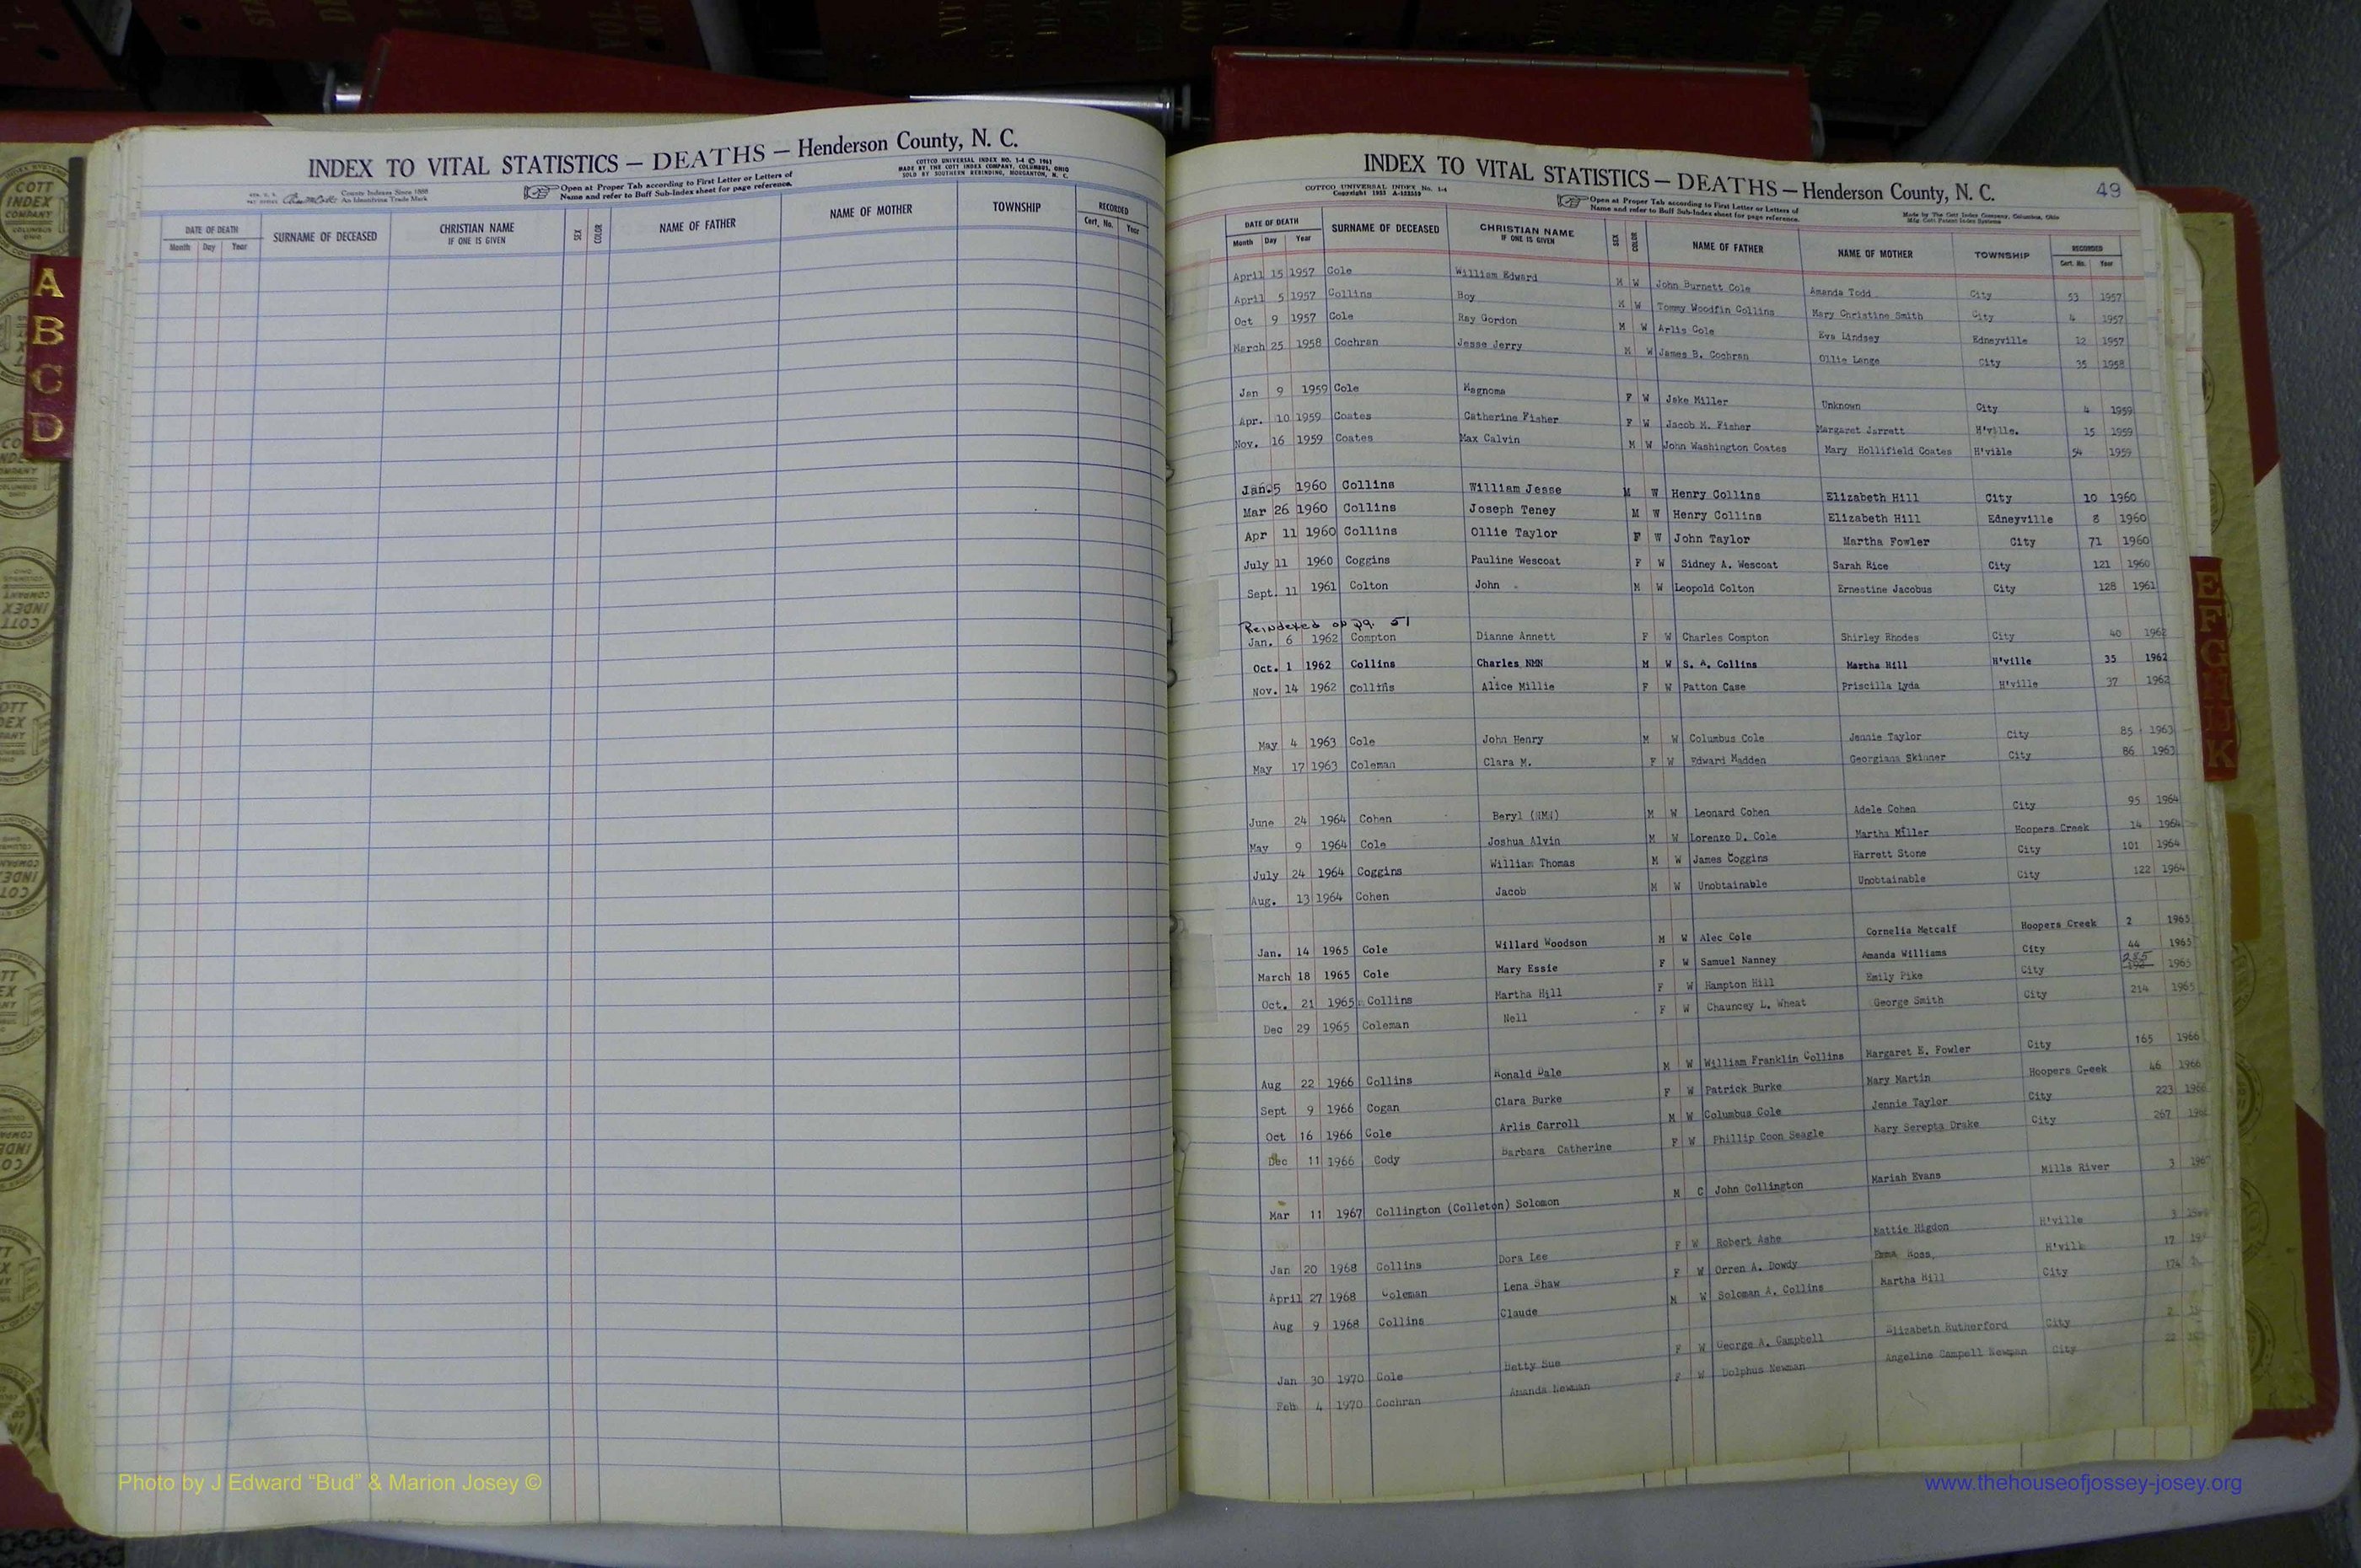 INDEX TO VITAL STATISTICS — DEATHS — Henderson County, N. C.
COTTCO UNIVERSAL INDEX NO. 1-4 © 1961
MADE BY THE COTT INDEX COMPANY, COLUMBUS, OHIO
SOLD BY SOUTHERN REBINDING, MORGANTON, N. C.
County Indexes Since 1888
An Identifying Trade Mark
Open at Proper Tab according to First Letter or Letters of
Name and refer to Buff Sub-Index sheet for page reference.
DATE OF DEATH Month Day Year SURNAME OF DECEASED CHRISTIAN NAME IF ONE IS GIVEN SEX COLOR NAME OF FATHER NAME OF MOTHER TOWNSHIP RECORDED Cert. No. Year
A
B
C
D
COTT
INDEX
COMPANY
INDEX TO VITAL STATISTICS — DEATHS — Henderson County, N. C. 49
COTTCO UNIVERSAL INDEX No. 1-4
Open at Proper Tab according to First Letter or Letters of
Name and refer to Buff Sub-Index sheet for page reference.
Made by The Cott Index Company, Columbus, Ohio
DATE OF DEATH Month Day Year SURNAME OF DECEASED CHRISTIAN NAME IF ONE IS GIVEN SEX COLOR NAME OF FATHER NAME OF MOTHER TOWNSHIP RECORDED Cert. No. Year
April 15 1957 Cole William Edward M W John Burnett Cole Amanda Todd City 53 1957
April 5 1957 Collins Boy M W Tommy Woodfin Collins Mary Christine Smith City 4 1957
Oct 9 1957 Cole Ray Gordon M W Arlis Cole Eva Lindsey Edneyville 12 1957
March 25 1958 Cochran Jesse Jerry M W James B. Cochran Ollie Lange City 35 1958
Jan 9 1959 Cole Magnoma F W Jake Miller Unknown City 4 1959
Apr. 10 1959 Coates Catherine Fisher F W Jacob M. Fisher Margaret Jarrett H'ville. 15 1959
Nov. 16 1959 Coates Max Calvin M W John Washington Coates Mary Hollifield Coates H'ville 54 1959
Jan. 5 1960 Collins William Jesse M W Henry Collins Elizabeth Hill City 10 1960
Mar 26 1960 Collins Joseph Teney M W Henry Collins Elizabeth Hill Edneyville 8 1960
Apr 11 1960 Collins Ollie Taylor F W John Taylor Martha Fowler City 71 1960
July 11 1960 Coggins Pauline Wescoat F W Sidney A. Wescoat Sarah Rice City 121 1960
Sept. 11 1961 Colton John M W Leopold Colton Ernestine Jacobus City 128 1961
Reindexed on pg. 51
Jan. 6 1962 Compton Dianne Annett F W Charles Compton Shirley Rhodes City 40 1962
Oct. 1 1962 Collins Charles NMN M W S. A. Collins Martha Hill H'ville 35 1962
Nov. 14 1962 Collins Alice Millie F W Patton Case Priscilla Lyda H'ville 37 1962
May 4 1963 Cole John Henry M W Columbus Cole Jennie Taylor City 85 1963
May 17 1963 Coleman Clara M. F W Edward Madden Georgiana Skinner City 86 1963
June 24 1964 Cohen Beryl (NMN) M W Leonard Cohen Adele Cohen City 95 1964
May 9 1964 Cole Joshua Alvin M W Lorenzo D. Cole Martha Miller Hoopers Creek 14 1964
July 24 1964 Coggins William Thomas M W James Coggins Harrett Stone City 101 1964
Aug. 13 1964 Cohen Jacob M W Unobtainable Unobtainable City 122 1964
Jan. 14 1965 Cole Willard Woodson M W Alec Cole Cornelia Metcalf Hoopers Creek 2 1965
March 18 1965 Cole Mary Essie F W Samuel Nanney Amanda Williams City 44 1965
Oct. 21 1965 Collins Martha Hill F W Hampton Hill Emily Pike City 1965
Dec 29 1965 Coleman Nell F W Chauncey L. Wheat George Smith City 214 1965
Aug 22 1966 Collins Ronald Dale M W William Franklin Collins Margaret E. Fowler City 165 1966
Sept 9 1966 Cogan Clara Burke F W Patrick Burke Mary Martin Hoopers Creek 46 1966
Oct 16 1966 Cole Arlis Carroll M W Columbus Cole Jennie Taylor City 223 1966
Dec 11 1966 Cody Barbara Catherine F W Phillip Coon Seagle Mary Serepta Drake City 267
Mar 11 1967 Collington (Colleton) Solomon M C John Collington Mariah Evans Mills River 3
Jan 20 1968 Collins Dora Lee F W Robert Ashe Mattie Higdon H'ville 3
April 27 1968 Coleman Lena Shaw F W Orren A. Dowdy Emma Ross H'vill 17
Aug 9 1968 Collins Claude M W Soloman A. Collins Martha Hill City 174
Jan 30 1970 Cole Betty Sue F W George A. Campbell Elizabeth Rutherford City 2
Feb 4 1970 Cochran Amanda Newman F W Dolphus Newman Angeline Campell Newman City
E
F
G
K
Photo by J Edward “Bud” & Marion Josey ©
www.thehouseofjossey-josey.org